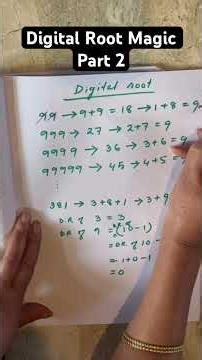 Digital Root Magic
Part 2
Digital root
99 → 9+9 = 18 → 1+8 = 9
999 → 27 → 2+7 = 9
9999 → 36 → 3+6 = 9
99999 → 45 → 4+5 =
381 → 3+8+1 → 3+9
D.R of 3 = 3
D.R of 9 = (10-1)
= DR of 10 -
= 1+0-1
= 0